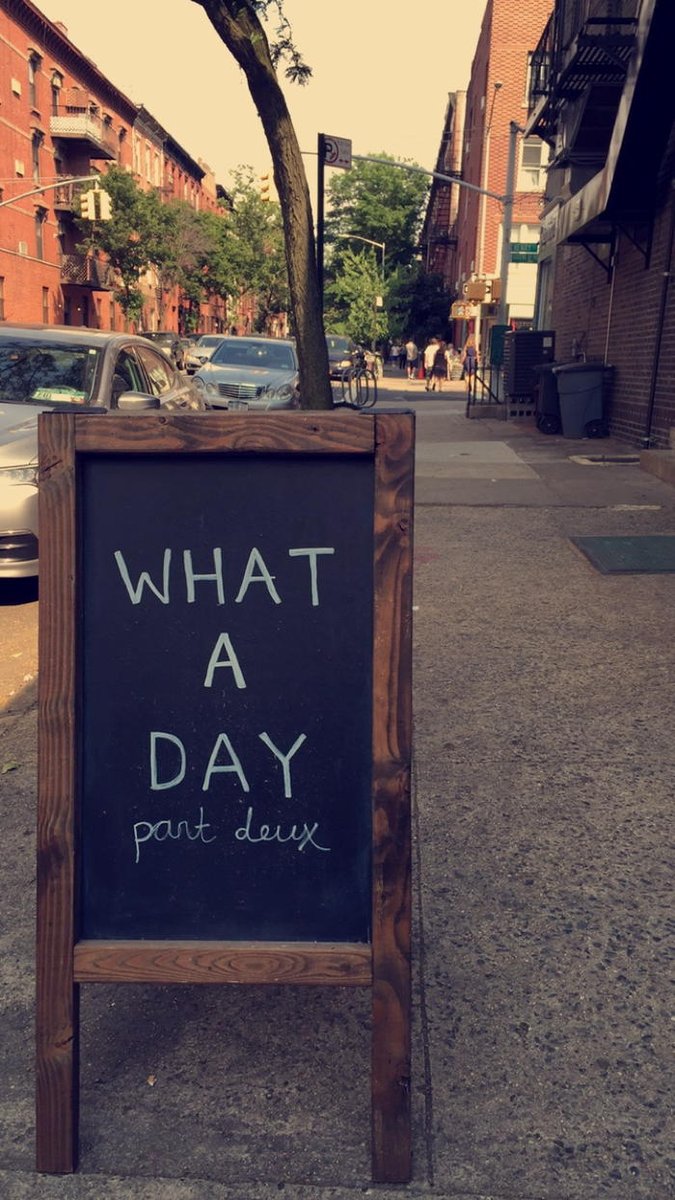 WHAT
A
DAY
part deux